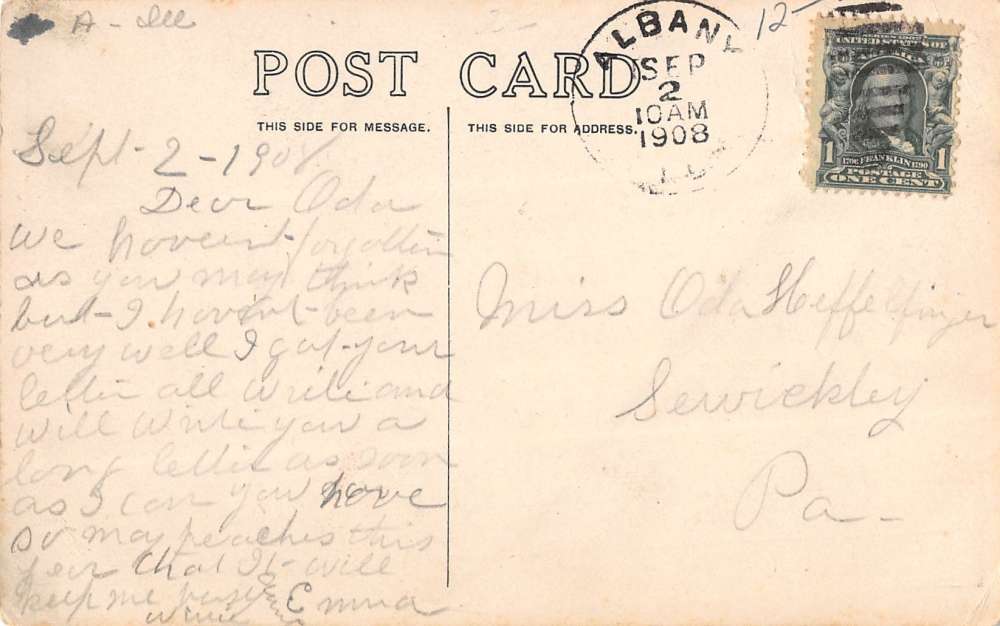 A - Ill
12-
POST CARD
THIS SIDE FOR MESSAGE.
THIS SIDE FOR ADDRESS.
ALBANY
SEP
2
10AM
1908
ILL
UNITED STATES OF
AMERICA
1 1706 FRANKLIN 1790 1
POSTAGE
ONE CENT
Sept - 2 - 1908
Dear Oda
we haveint forgotten
as you may think
but - I havint - been
very well I got - your
letter all write and
will write you a
long letter as soon
as I can you have
so may peaches this
year that It - will
keep me busy
Emma
Miss Oda Heffelfinger
Sewickley
Pa -